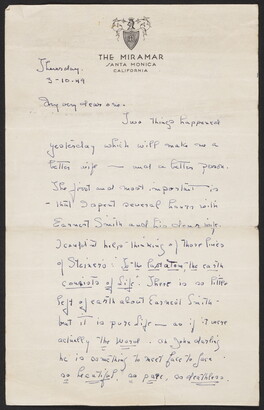 THE MIRAMAR
SANTA MONICA
CALIFORNIA
Thursday.
3-10-49
My very dear one.
Two things happened
yesterday which will make me a
better wife — and a better person.
The first and most important is
- that I spent several hours with
Earnest Smith and his dear wife.
I couldn't help thinking of those lines
of Steiners: In the the earth
consists of life. There is so little
left of earth about Earnest Smith-
but it is pure life — as if it were
actually the Word. - Oh John darling
he is something to meet face to face -
so beautiful, so pure, so deathless.